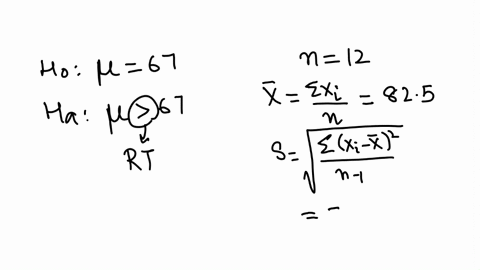 Ho: μ = 67
Ha: μ > 67
RT
n = 12
X̄ = Σxi / n = 82.5
S = √(Σ(xi - x̄)² / n-1)
= -